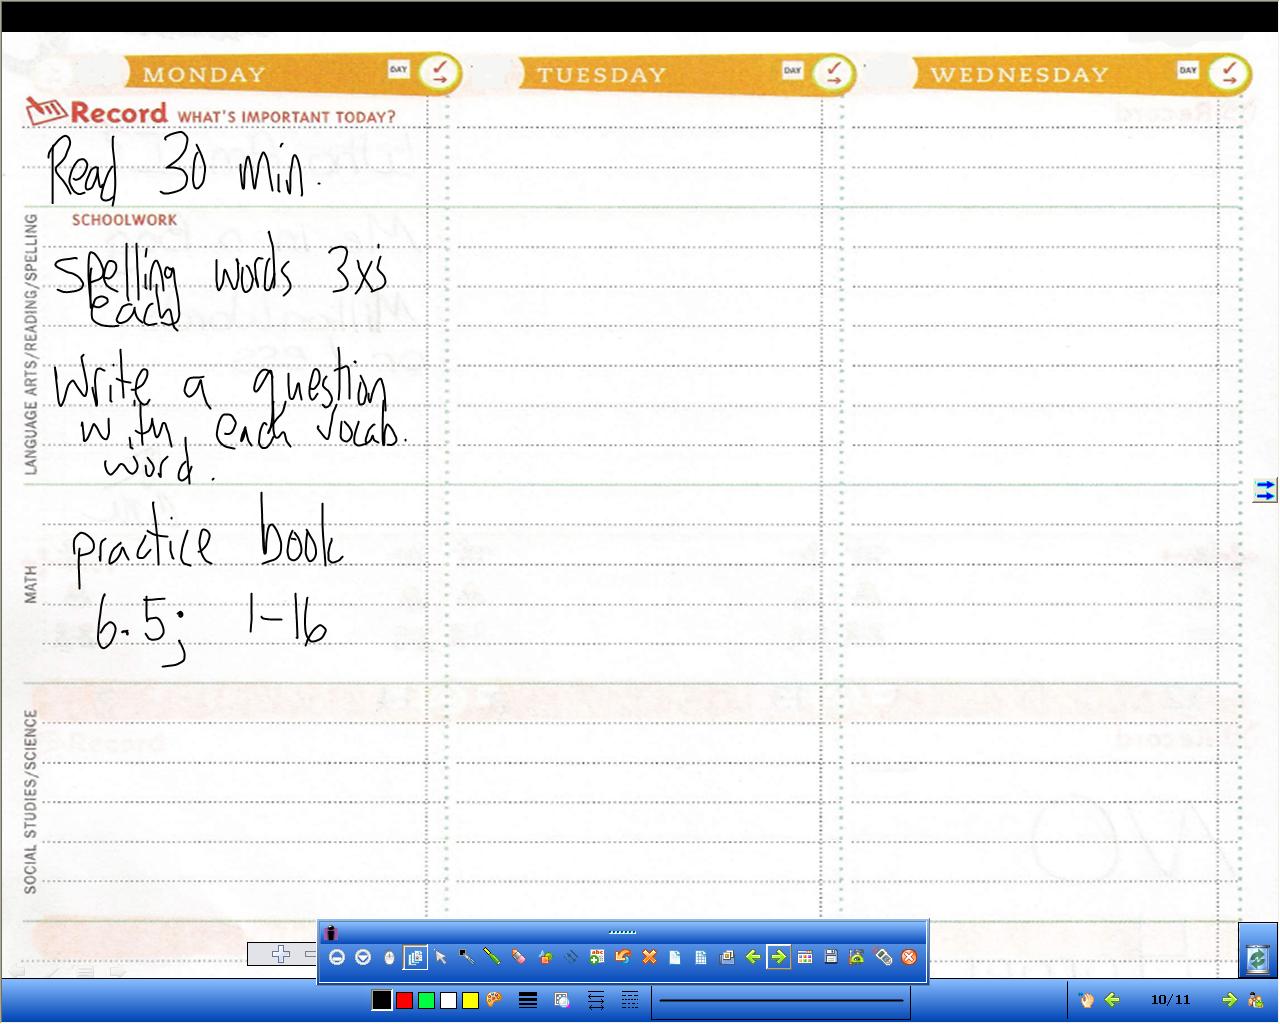 MONDAY DAY TUESDAY DAY WEDNESDAY DAY
Record WHAT'S IMPORTANT TODAY?
Read 30 min.
SCHOOLWORK
LANGUAGE ARTS/READING/SPELLING
spelling words 3xs
each
Write a question
with each vocab.
word.
MATH
practice book
6.5; 1-16
SOCIAL STUDIES/SCIENCE
10/11